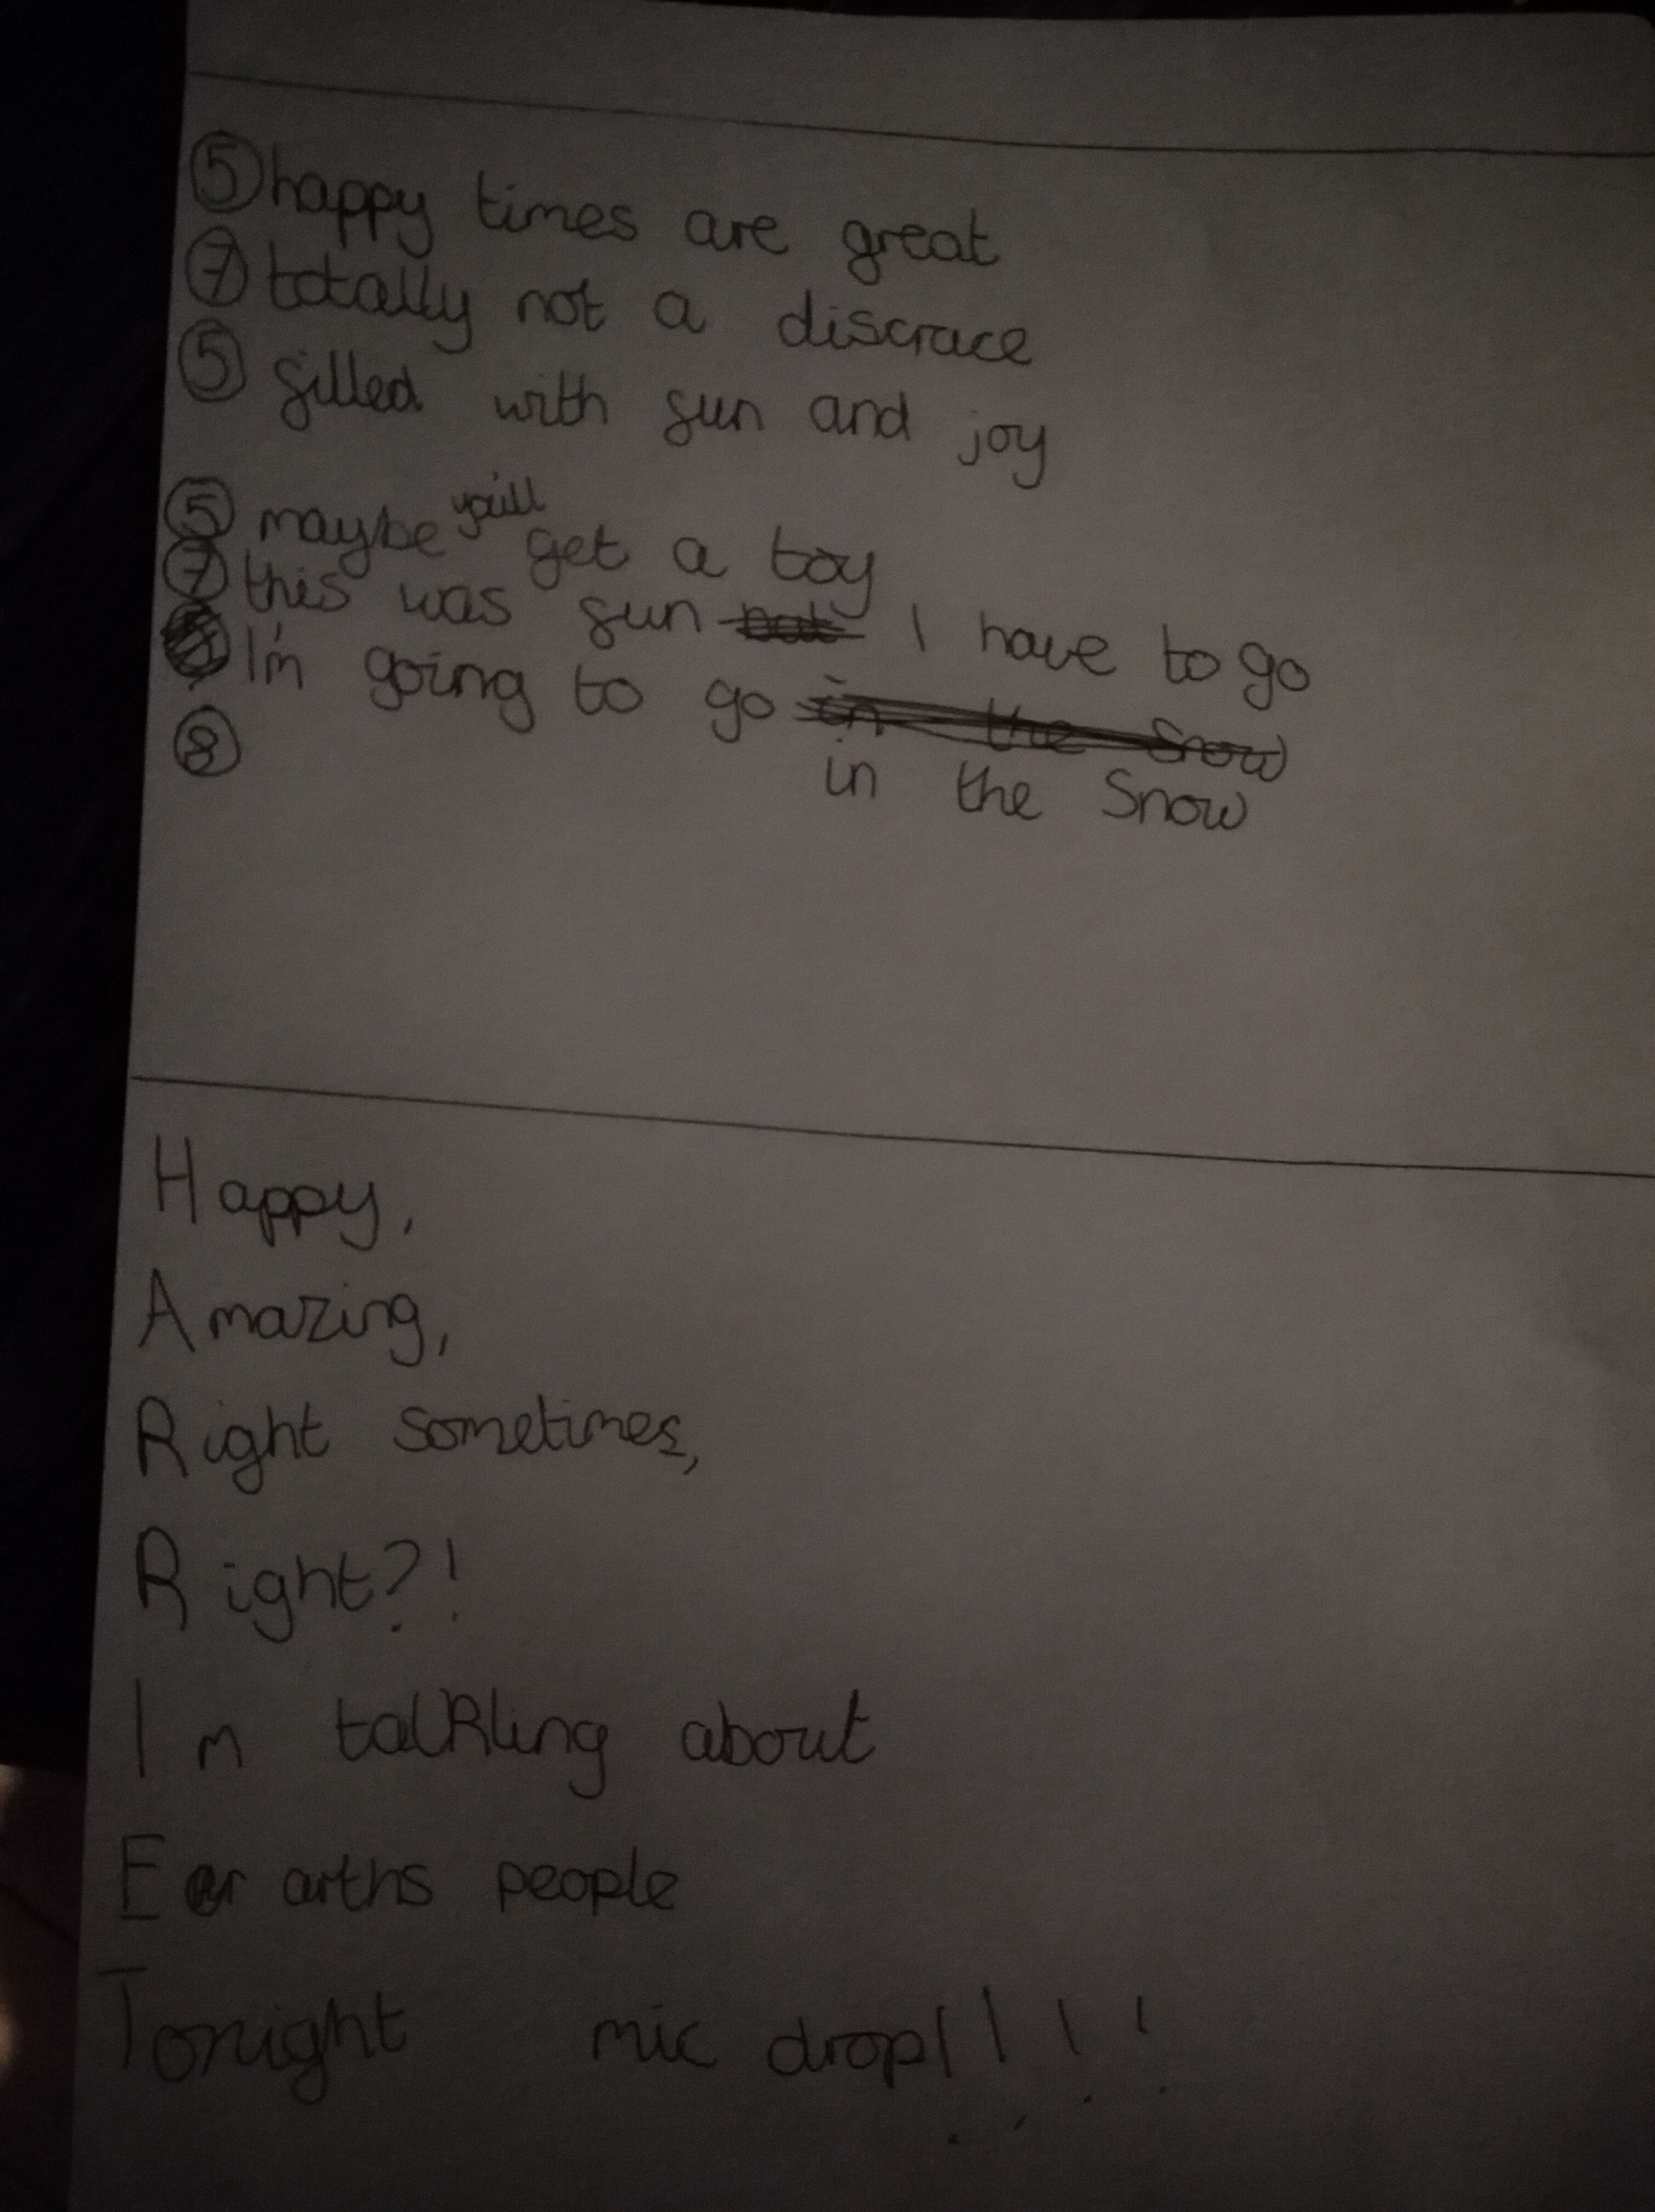 ⑤ happy times are great
⑦ totally not a discrace
⑤ filled with fun and joy
⑤ maybe you'll get a toy
⑦ this was fun I have to go
I'm going to go
⑧ in the Snow
Happy,
Amazing,
Right sometimes,
Right?!
Im talkling about
Earths people
Tonight mic drop!!!!